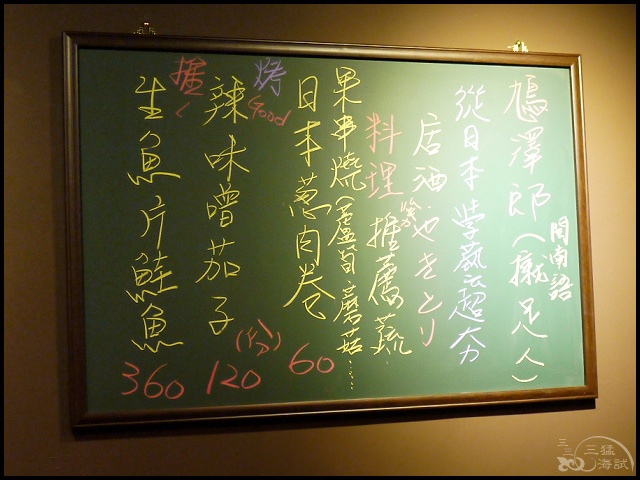 鳩澤郎(撠足人)
閩南語
從日本學藝超夯
居酒やきとり
料理 推薦蔬
果串燒(蘆筍.蘑菇......
日本蔥肉卷 60
烤
辣味噌茄子 120
Good
(份)
推
生魚片鮭魚 360
三猛
海試